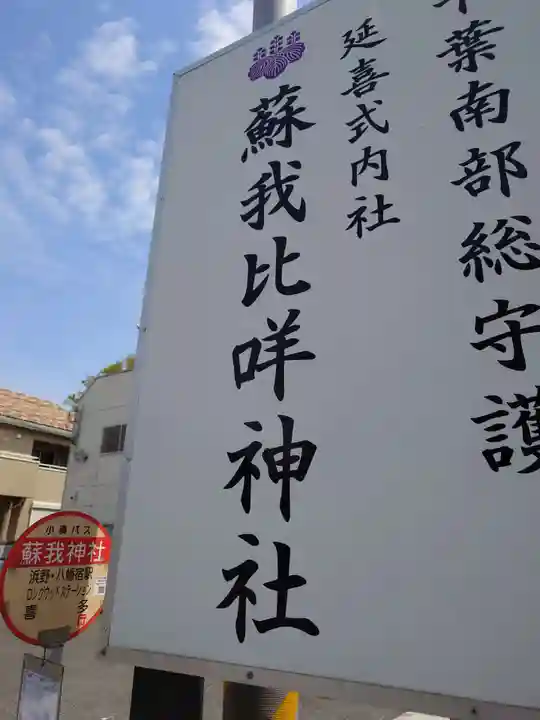 千葉南部総守護
延喜式内社
蘇我比咩神社
小湊バス
蘇我神社
浜野・八幡宿駅
ロングウッドステーション
喜多行